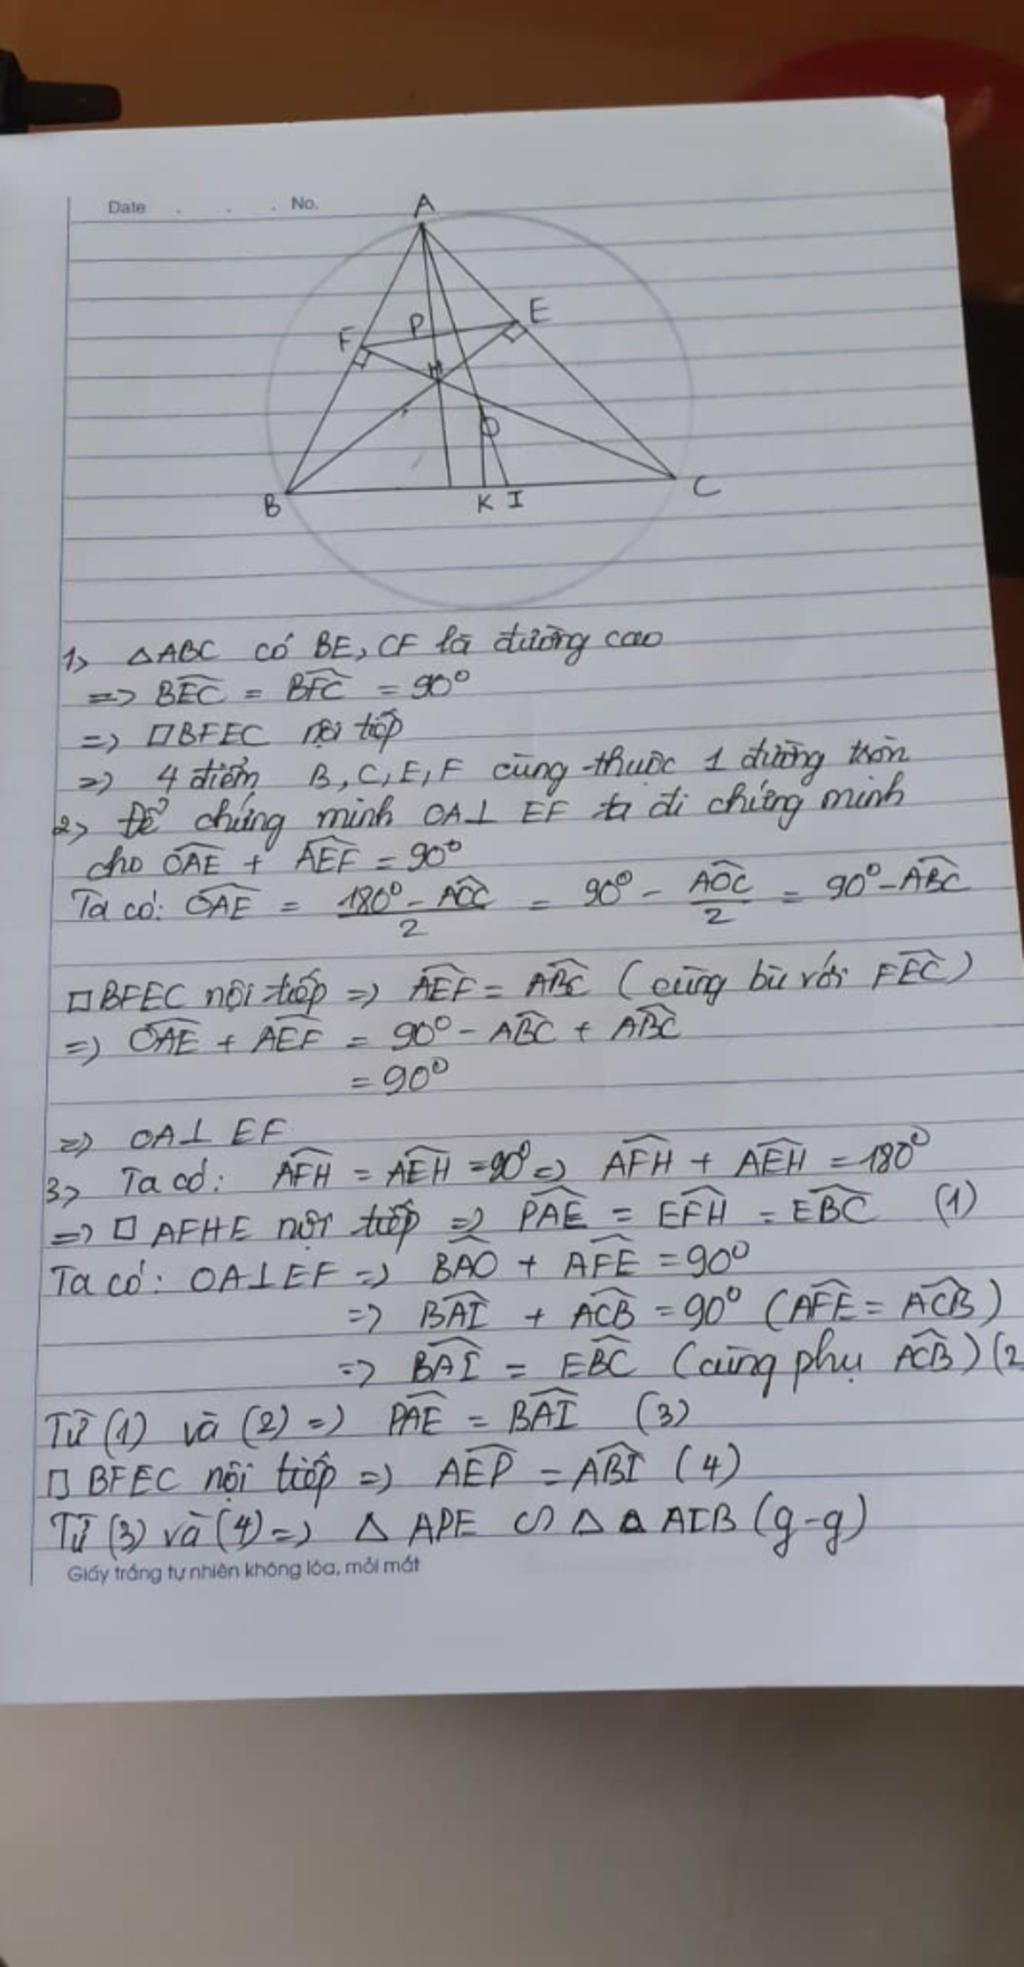 Date . . . No.
A
F P E
H
O
B K I C
1> △ABC có BE, CF là đường cao
=> BEC = BFC = 90°
=> □BFEC nội tiếp
=> 4 điểm B, C, E, F cùng thuộc 1 đường tròn
2> Để chứng minh OA⊥ EF ta đi chứng minh
cho OAE + AEF = 90°
Ta có: OAE = (180° - AOC)/2 = 90° - AOC/2 = 90° - ABC
□BFEC nội tiếp => AEF = ABC (cùng bù với FEC)
=> OAE + AEF = 90° - ABC + ABC
= 90°
=> OA⊥ EF
3> Ta có: AFH = AEH = 90° => AFH + AEH = 180°
=> □ AFHE nội tiếp => PAE = EFH = EBC (1)
Ta có: OA⊥EF => BAO + AFE = 90°
=> BAI + ACB = 90° (AFE = ACB)
=> BAI = EBC (cùng phụ ACB) (2
Từ (1) và (2) => PAE = BAI (3)
□ BFEC nội tiếp => AEP = ABI (4)
Từ (3) và (4) => △ APE ∽ △ AIB (g-g)
Giấy trắng tự nhiên không lóa, mỏi mắt